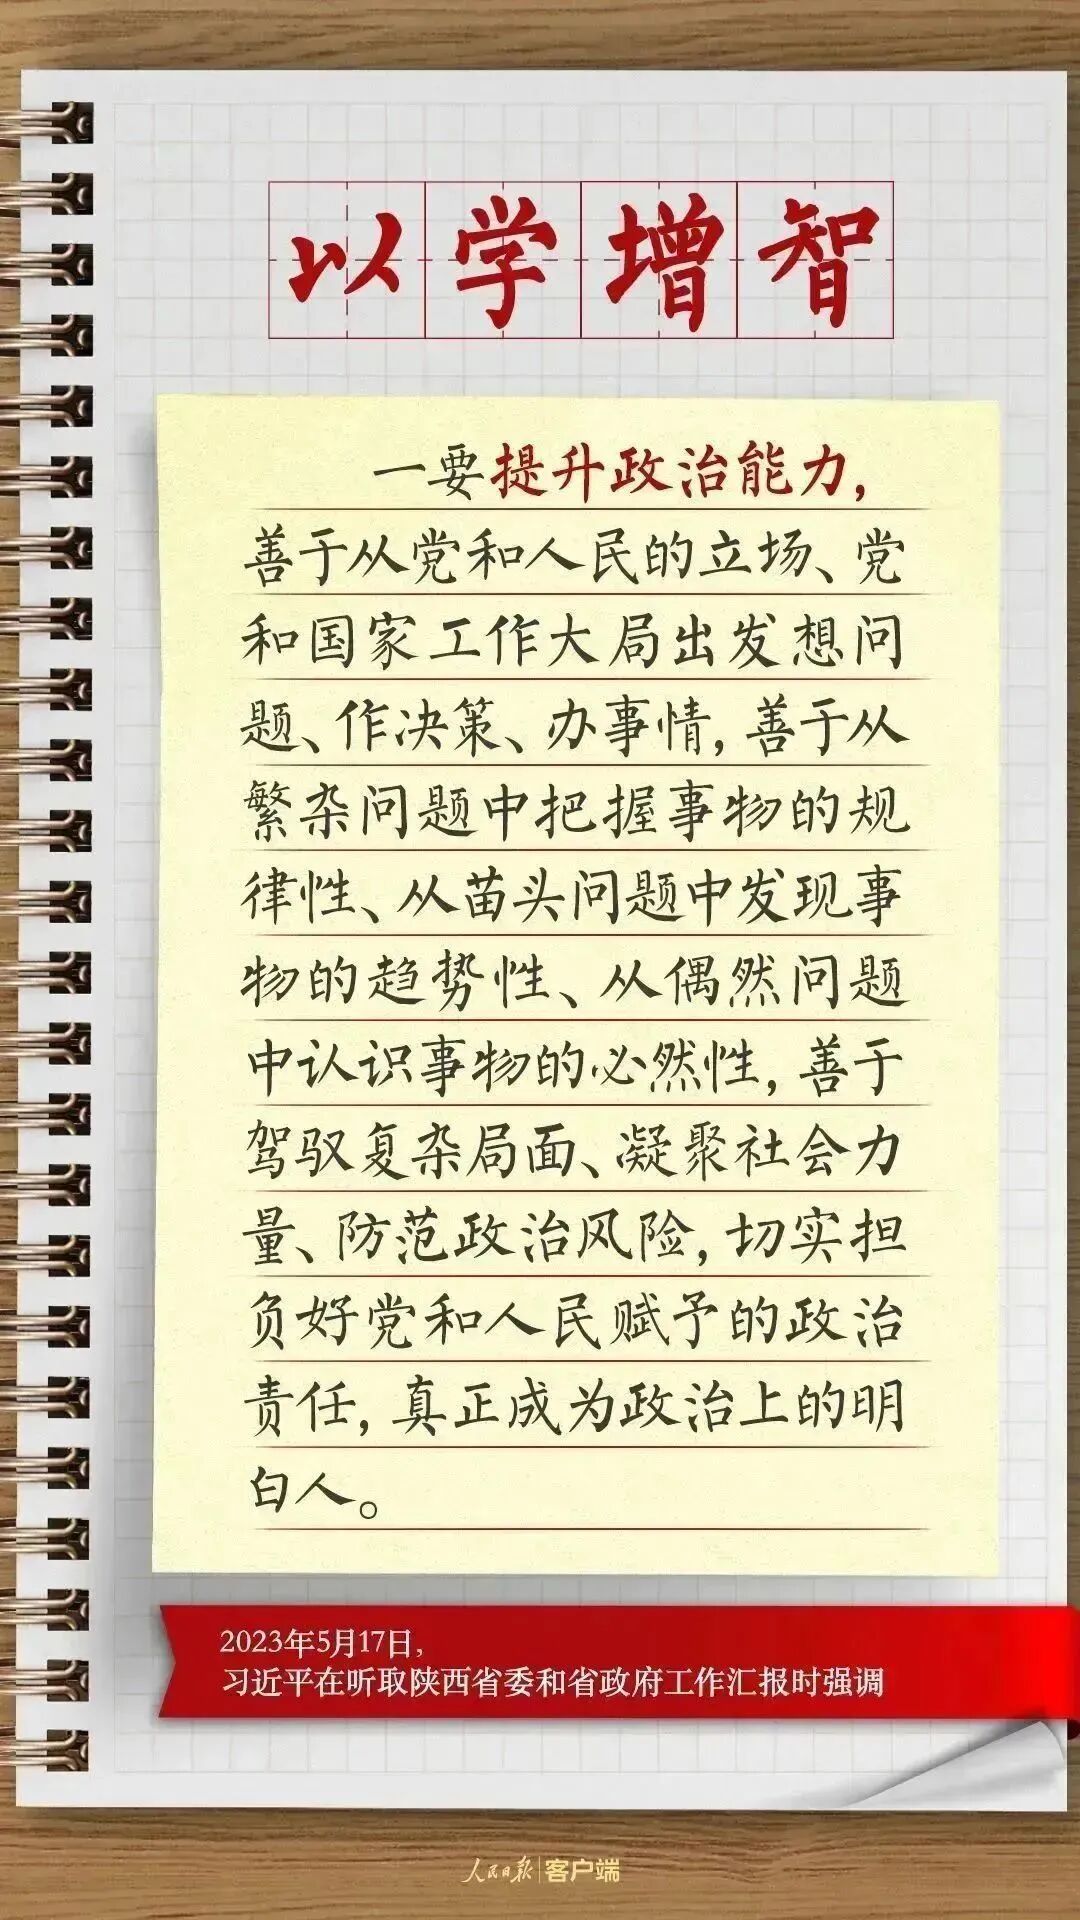 以学增智
一要提升政治能力，
善于从党和人民的立场、党
和国家工作大局出发想问
题、作决策、办事情，善于从
繁杂问题中把握事物的规
律性、从苗头问题中发现事
物的趋势性、从偶然问题
中认识事物的必然性，善于
驾驭复杂局面、凝聚社会力
量、防范政治风险，切实担
负好党和人民赋予的政治
责任，真正成为政治上的明
白人。
2023年5月17日，
习近平在听取陕西省委和省政府工作汇报时强调
人民日报|客户端